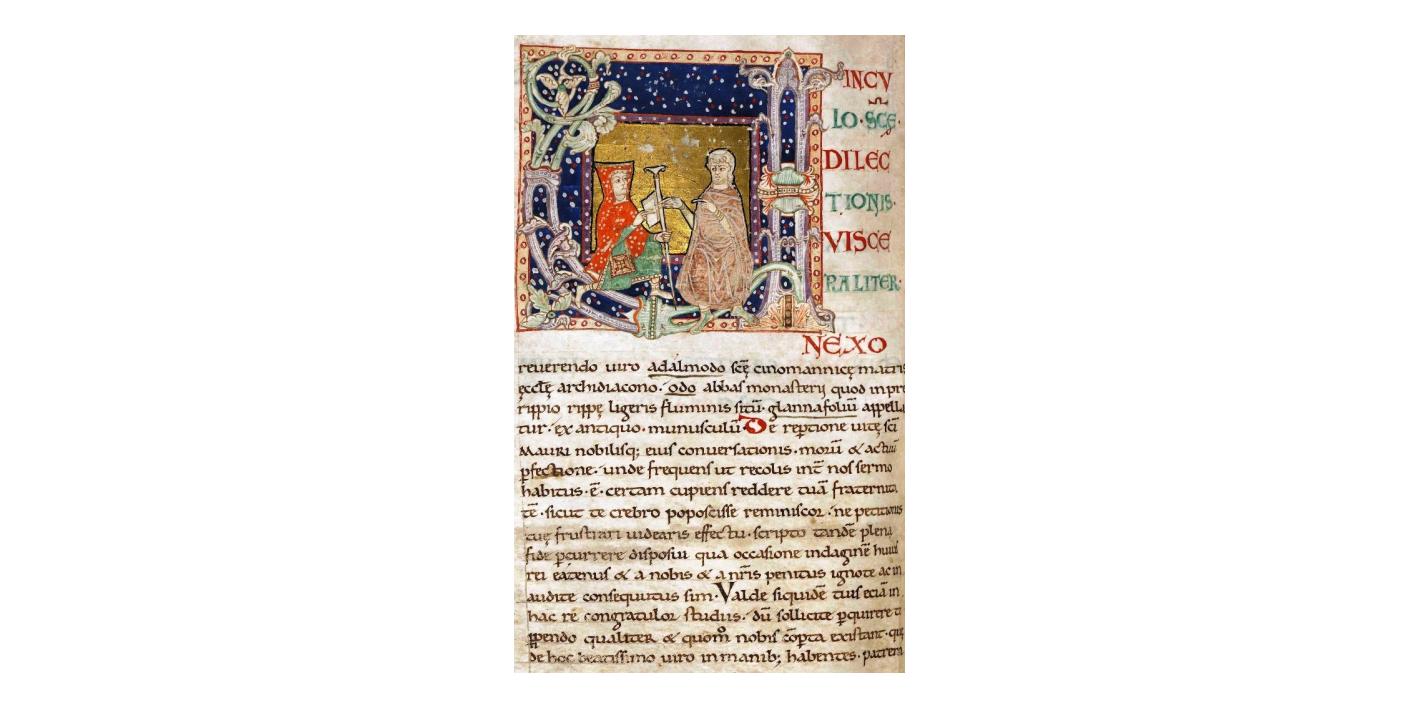 INCV
LO·SCE·
DILEC
TIONIS·
VISCE
RALITER·
NEXO
reuerendo uiro adalmodo scę cinomannicę matris
ęcclę archidiacono· odo abbas monasterij quod in pro
rippio rippę ligeris fluminis sitū· glannafoliū appella
tur· ex antiquo· munusculū De reptione uitę sci
MAURI nobilisq; eius conuersationis· morū & actuū
pfectione· unde frequens ut recolis int nos sermo
habitus· ē· certam cupiens reddere tuā fraternita
tē· sicut te crebro poposcisse reminiscor· ne petitionis
tuę frustrari uidearis effectu· scripto tandē plena
fide pcurrere disposui qua occasione indaginē huius
rei eatenus & a nobis & a nris penitus ignote ac in
audite consequutus sim· Valde siquidē tuis eciā in
hac rē congratulor studiis· dū sollicite pquirere
ppendo qualiter & quom nobis cōpta existant· quę
de hoc beatissimo uiro in manib; habentes· patrem